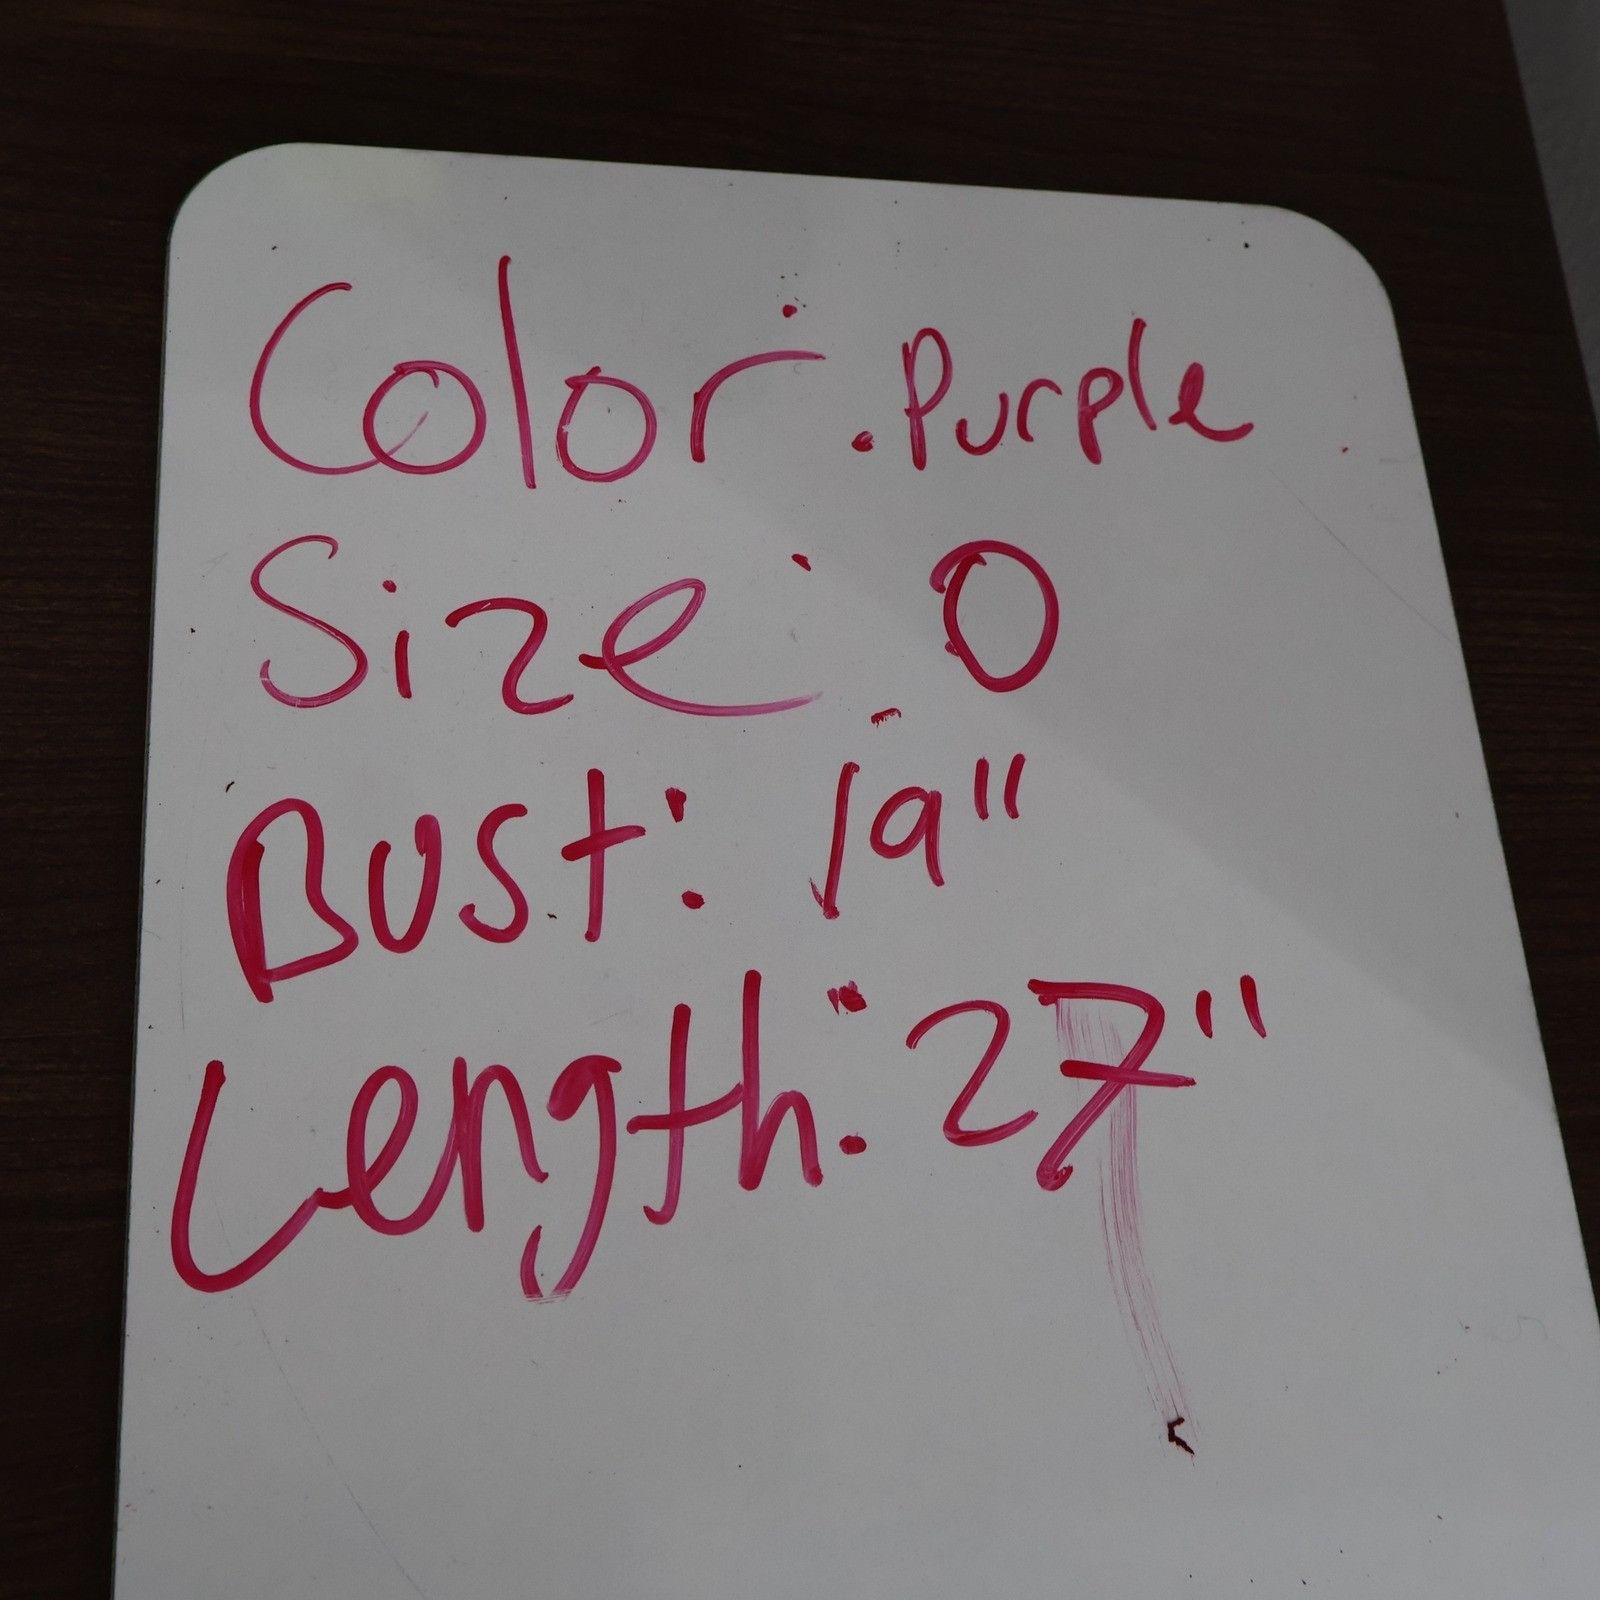 Color: Purple
Size: 0
Bust: 19"
Length: 27"